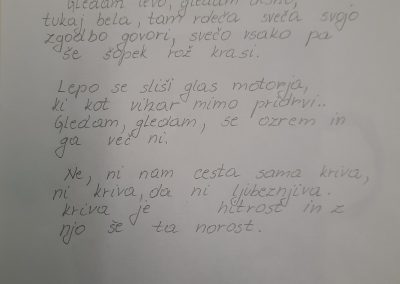 Gledam levo, gledam desno,
tukaj bela, tam rdeča sveča svojo
zgodbo govori, svečo vsako pa
še šopek rož krasi.
Lepo se sliši glas motorja,
ki kot vihar mimo pridrvi..
Gledam, gledam, se ozrem in
ga več ni.
Ne, ni nam cesta sama kriva,
ni kriva, da ni ljubeznjiva.
kriva je hitrost in z
njo še ta norost.